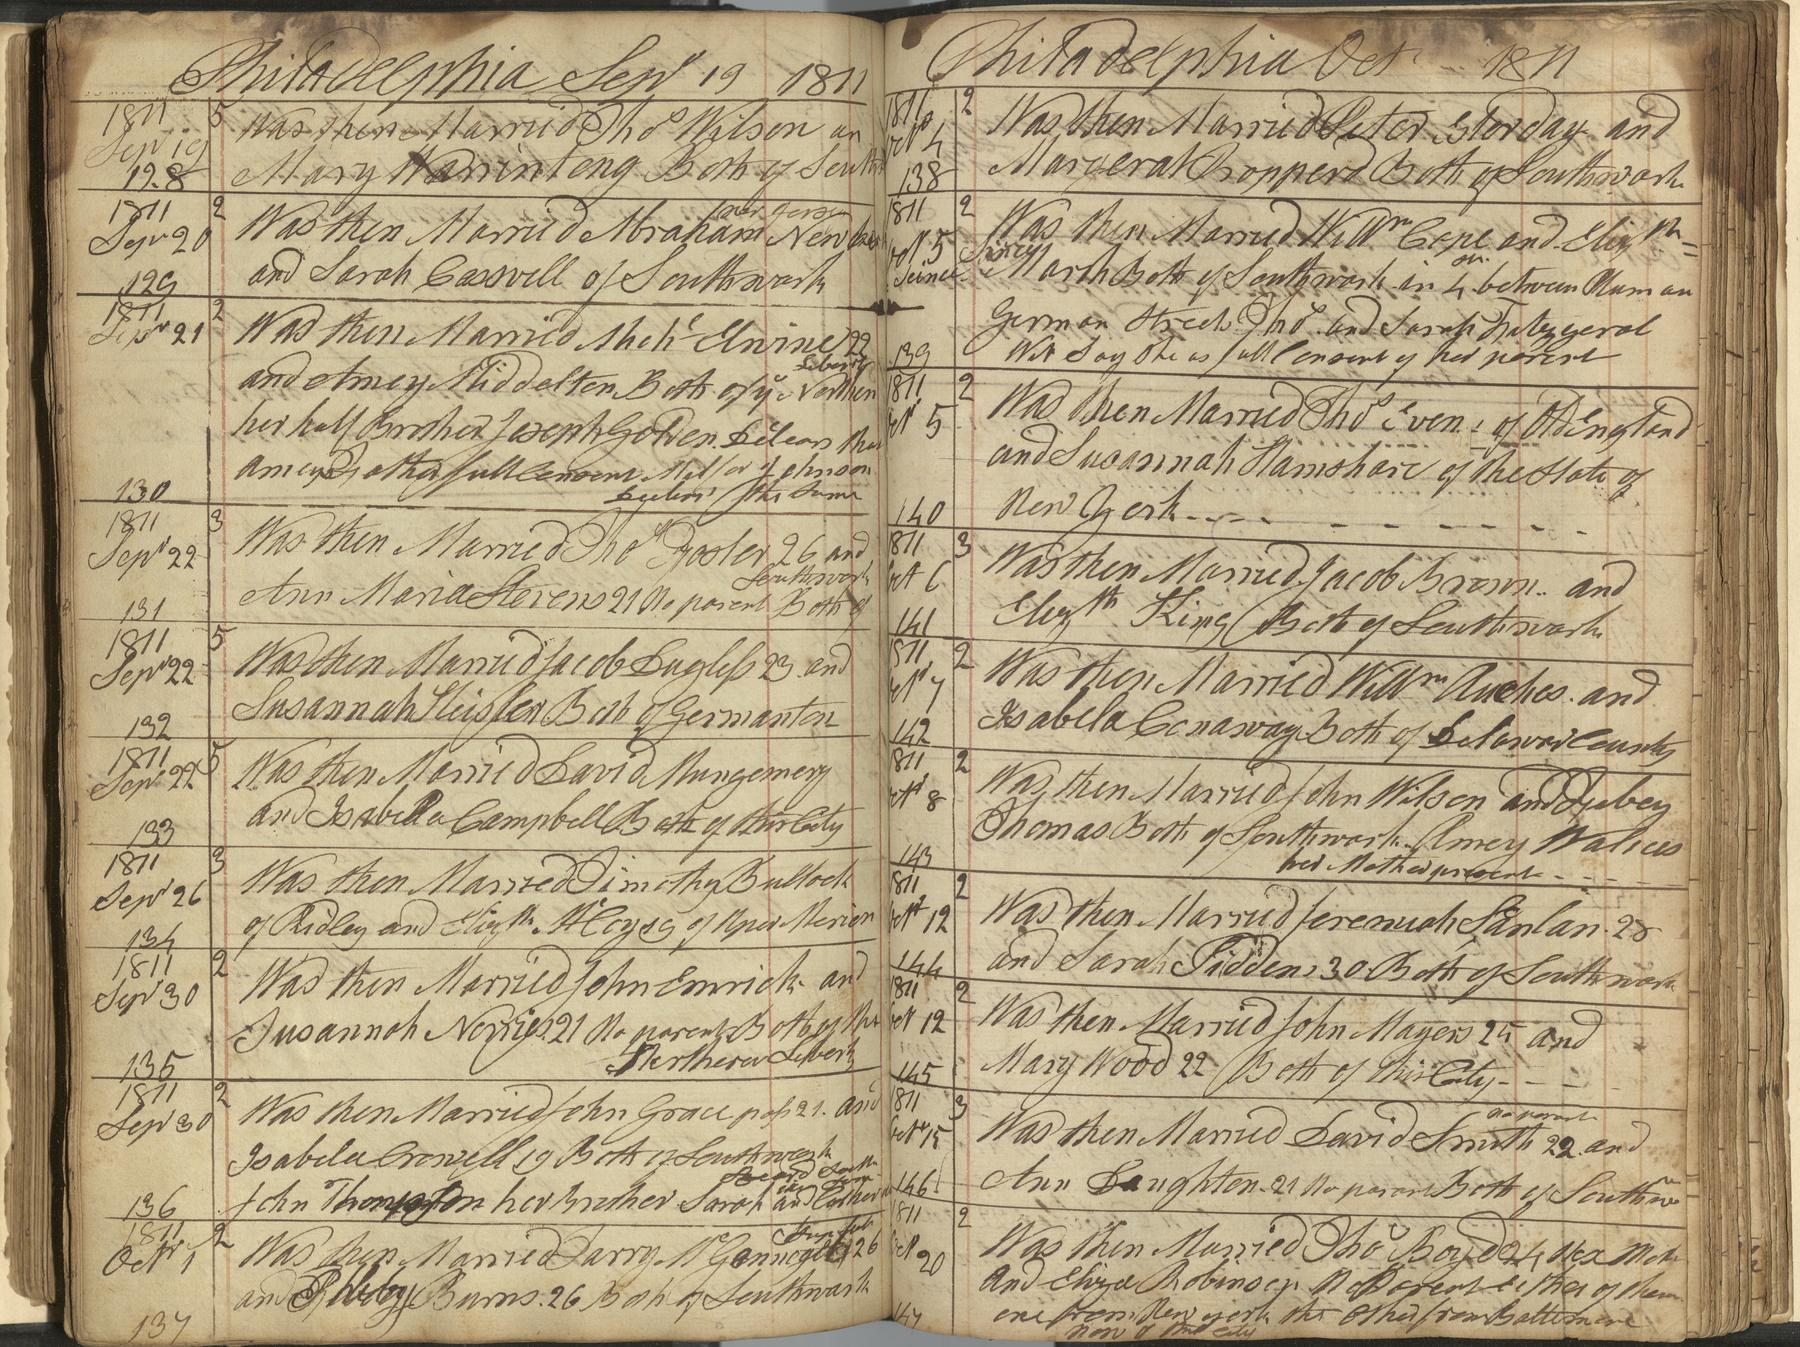 Philadelphia Sepr 19 1811
1811 5 Was then Married Thos Wilson an
Sepr 19
128 Mary Both of South
1811 2 Was then Married Abraham New
Sepr 20
129 and Sarah Casswell of Southwark
1811 2 Was then Married Elvine 22
Sepr 21
Liberty
and Amey Middelton Both of ye Northen
her half Brother Joseph Golden that
130
the Same
1811 3 Was then Married Thos Foster 26 and
Sepr 22
Southwark
131 Ann Maria Stevens 21 No parent Both of
1811 5 Was then Married Jacob 23 and
Sepr 22
132 Susannah Both of Germanton
1811 5 Was then Married David Mungemery
Sepr 22
133 and Isabella Campbell Both of this City
1811 3 Was then Married Timothy Bullock
Sepr 26
134 of Ridley and Elizth of Uper Merion
1811 2 Was then Married John Emrick and
Sepr 30
Susannah Norris 21 No parents Both of the
135 Northern Liberty
1811 2 Was then Married John Grace past 21 and
Sepr 30
Isabela Crowell 19 Both of Southwark
136 John Thompson her Brother Sarah and Esther
1811 2 Was then Married 26
Octr 1
137 and Burns 26 Both of Southwark
Philadelphia Oct 1811
1811 2 Was then Married Peter and
Oct 4
138 Margerat Both of Southwark
1811 2 Was then Married Willm Cope and Elizth
Oct 5
Marsh Both of Southwark in 4 between Plum an
German Street Thos and Sarah Fitzgeral
139 Wit Say She as full Consent of her parent
1811 2 Was then Married Thos Evens of Old England
Oct 5
and Susannah Hamshare of the State of
140 New York
1811 3 Was then Married Jacob Brown and
Oct 6
141 Elizth King Both of Southwark
1811 2 Was then Married Willm and
Oct 7
142 Isabela Conaway Both of Delawar County
1811 2 Was then Married John Wilson and
Oct 8
Thomas Both of Southwark Amey
143 her Mother present
1811 2 Was then Married Jeremiah 28
Oct 12
144 and Sarah 30 Both of Southwark
1811 2 Was then Married John Mayers 25 and
Oct 12
145 Mary Wood 22 Both of this City
no parent
1811 3 Was then Married David Smith 22 and
Oct 15
146 Ann 21 No parent Both of Southw
1811 2 Was then Married Thos Boyd 24
Oct 20
and Eliza Robinson No Parent of them
147 one from New york the other from Baltemore